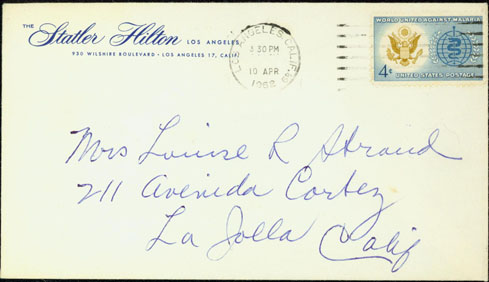 THE Statler Hilton LOS ANGELES
930 WILSHIRE BOULEVARD - LOS ANGELES 17, CALIF.
LOS ANGELES, CALIF.
3 30 PM
10 APR
1962
WORLD UNITED AGAINST MALARIA
4¢
UNITED STATES POSTAGE
Mrs Louise R Strand
211 Avenida Cortez
La Jolla
Calif